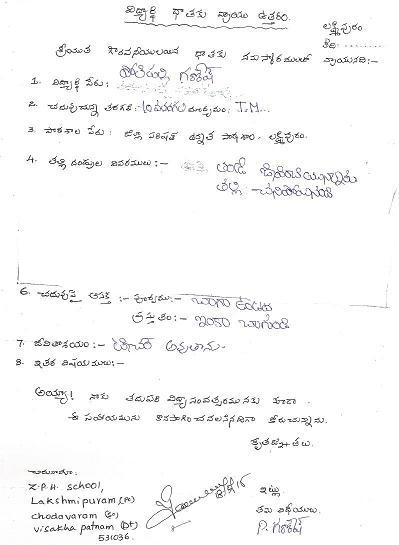 విద్యార్థి దాతకు వ్రాయు ఉత్తరం.
లక్ష్మీపురం
తేది:
శ్రీయుత గౌరవనీయులయిన దాతకు నమస్కారములతో వ్రాయునది:-
1. విద్యార్థి పేరు: గణేష్
2. చదువుచున్న తరగతి: 10 మాధ్యమం: T.M...
3. పాఠశాల పేరు: జిల్లా పరిషత్ ఉన్నత పాఠశాల, లక్ష్మీపురం.
4. తల్లి దండ్రుల వివరములు:- తండ్రి
తల్లి - చనిపోయినది
6. చదువుపై ఆసక్తి :- పూర్వము:- బాగా ఉండేది
ప్రస్తుతం:- ఇంకా బాగుంది
7. జీవితాశయం:- టీచర్ అవుతాను.
8. ఇతర విషయములు:-
అయ్యా! నాకు తదుపరి విద్యాసంవత్సరమునకు కూడా
ఈ సహాయమును కొనసాగించవలసినదిగా కోరుచున్నాను.
కృతజ్ఞతలు.
చిరునామా:
Z.P.H. SCHOOL,
Lakshmipuram (PO)
Chodavaram (M)
Visakha patnam (Dt)
531036.
ఇట్లు
తమ విధేయులు.
P. గణేష్